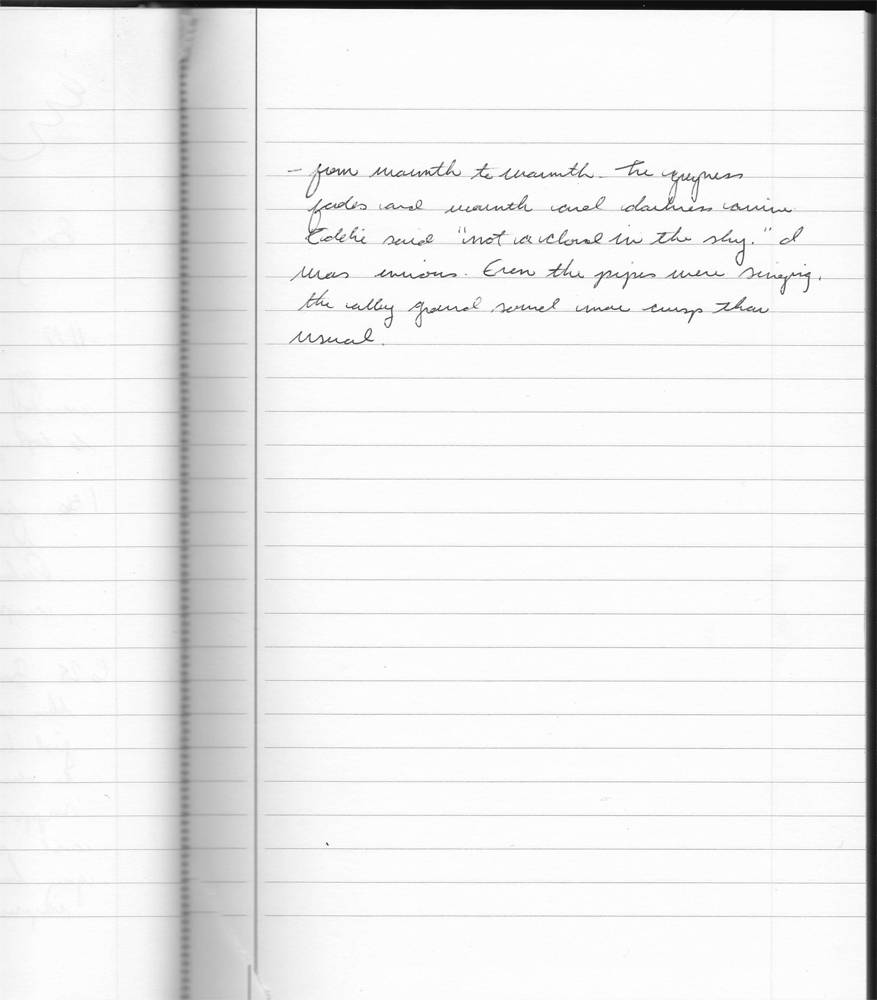 - from warmth to warmth. The greyness
fades and warmth and darkness arrive.
Eddie said "not a cloud in the sky." I
was envious. Even the pipes were singing.
the alley gravel sound more crisp than
usual.